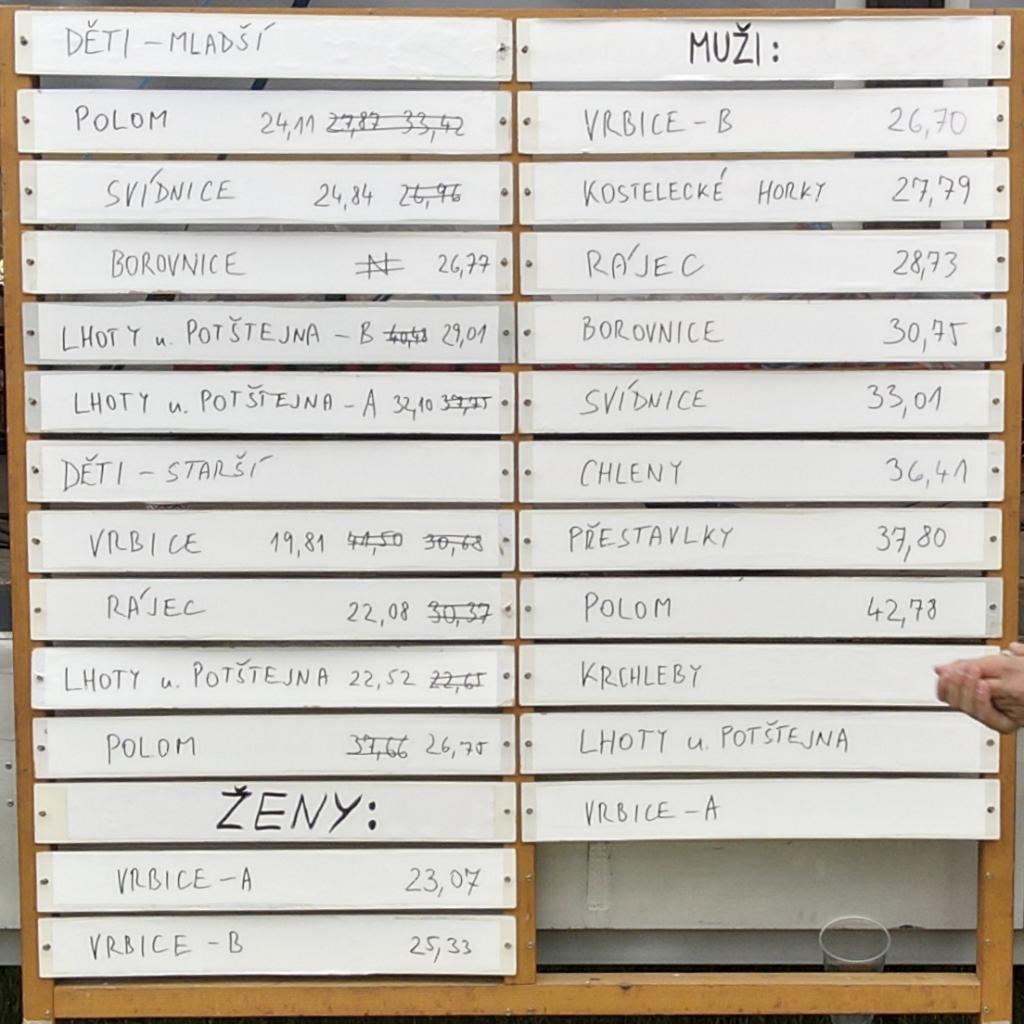 DĚTI - MLADŠÍ
POLOM 24,11 27,87 33,42
SVÍDNICE 24,84 26,96
BOROVNICE N 26,77
LHOTY u. POTŠTEJNA - B 40,48 29,01
LHOTY u. POTŠTEJNA - A 32,10 39,75
DĚTI - STARŠÍ
VRBICE 19,81 41,50 30,68
RÁJEC 22,08 30,37
LHOTY u. POTŠTEJNA 22,52 22,65
POLOM 37,66 26,75
ŽENY:
VRBICE - A 23,07
VRBICE - B 25,33
MUŽI:
VRBICE - B 26,70
KOSTELECKÉ HORKY 27,79
RÁJEC 28,73
BOROVNICE 30,75
SVÍDNICE 33,01
CHLENY 36,41
PŘESTAVLKY 37,80
POLOM 42,78
KRCHLEBY
LHOTY u. POTŠTEJNA
VRBICE - A